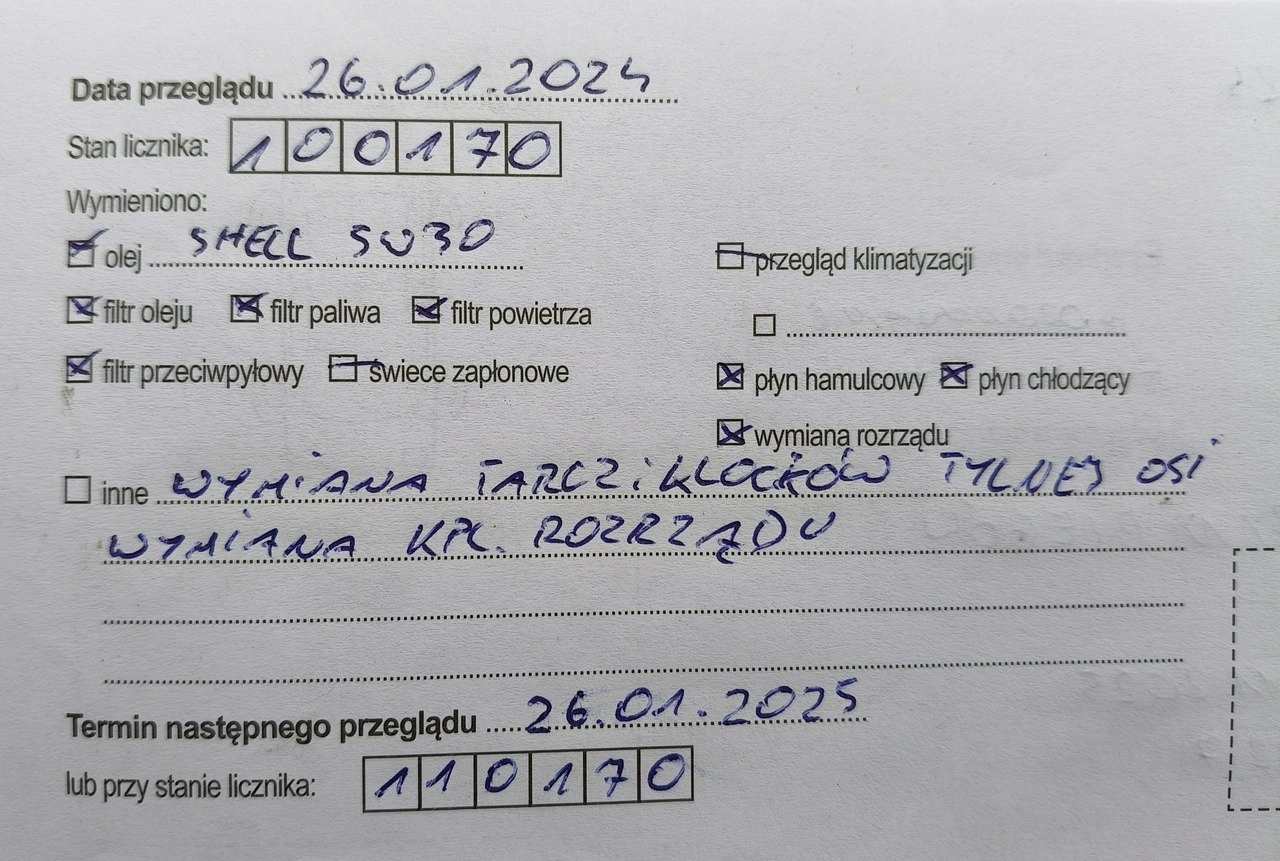 Data przeglądu 26.01.2024
Stan licznika: 100170
Wymieniono:
olej SHELL 5W30
przegląd klimatyzacji
filtr oleju filtr paliwa filtr powietrza
filtr przeciwpyłowy świece zapłonowe
płyn hamulcowy płyn chłodzący
wymiana rozrządu
inne WYMIANA TARCZ i KLOCKÓW TYLNEJ OSI
WYMIANA KPL. ROZRZĄDU
Termin następnego przeglądu 26.01.2025
lub przy stanie licznika: 110170